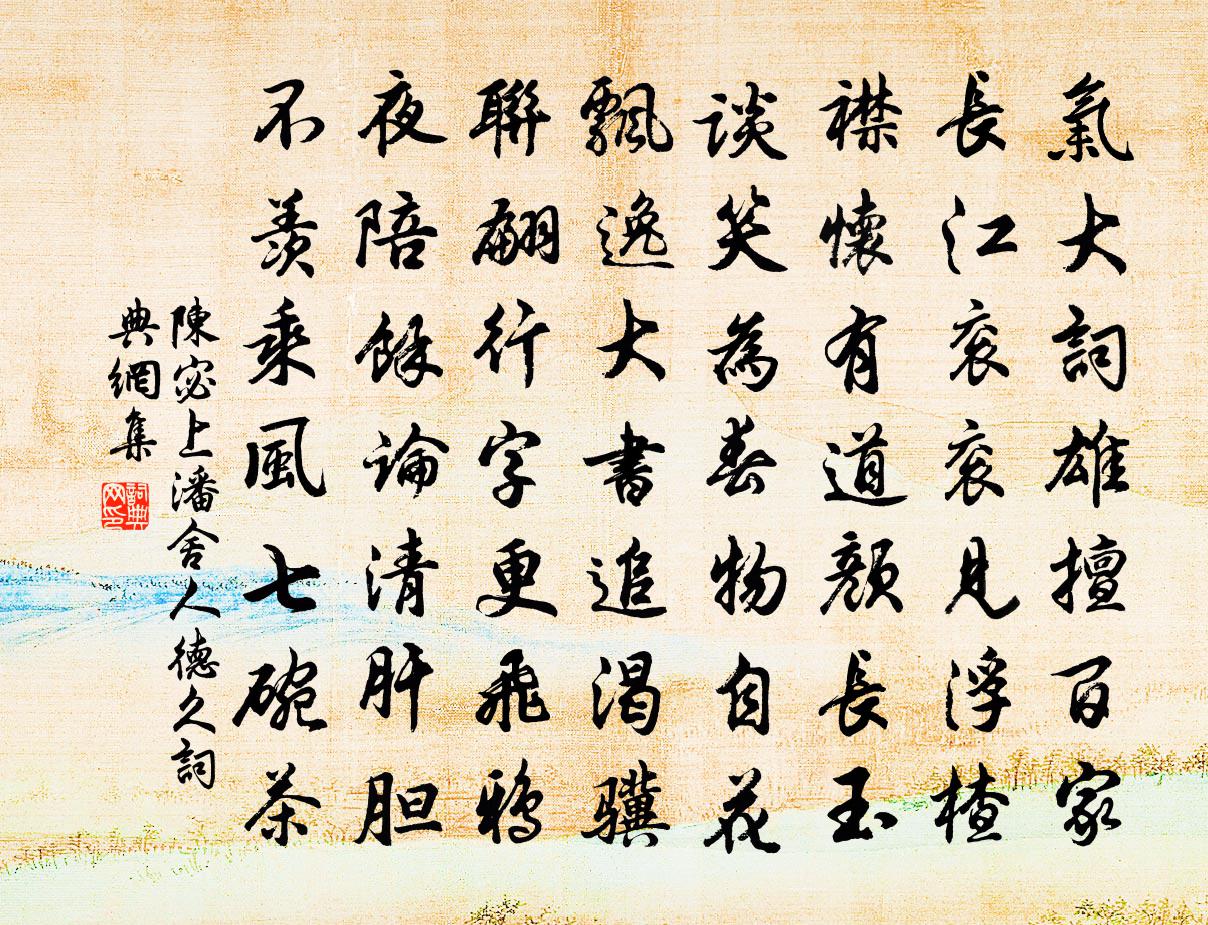 氣大詞雄擅百家
長江衮衮見浮楂
襟懷有道顏長玉
談笑為春物自花
飄逸大書追渴驥
聯翩行字更飛鴉
夜陪餘論清肝胆
不羨乘風七碗茶
陳宓上潘舍人德久詞
典網集
詞典
网印